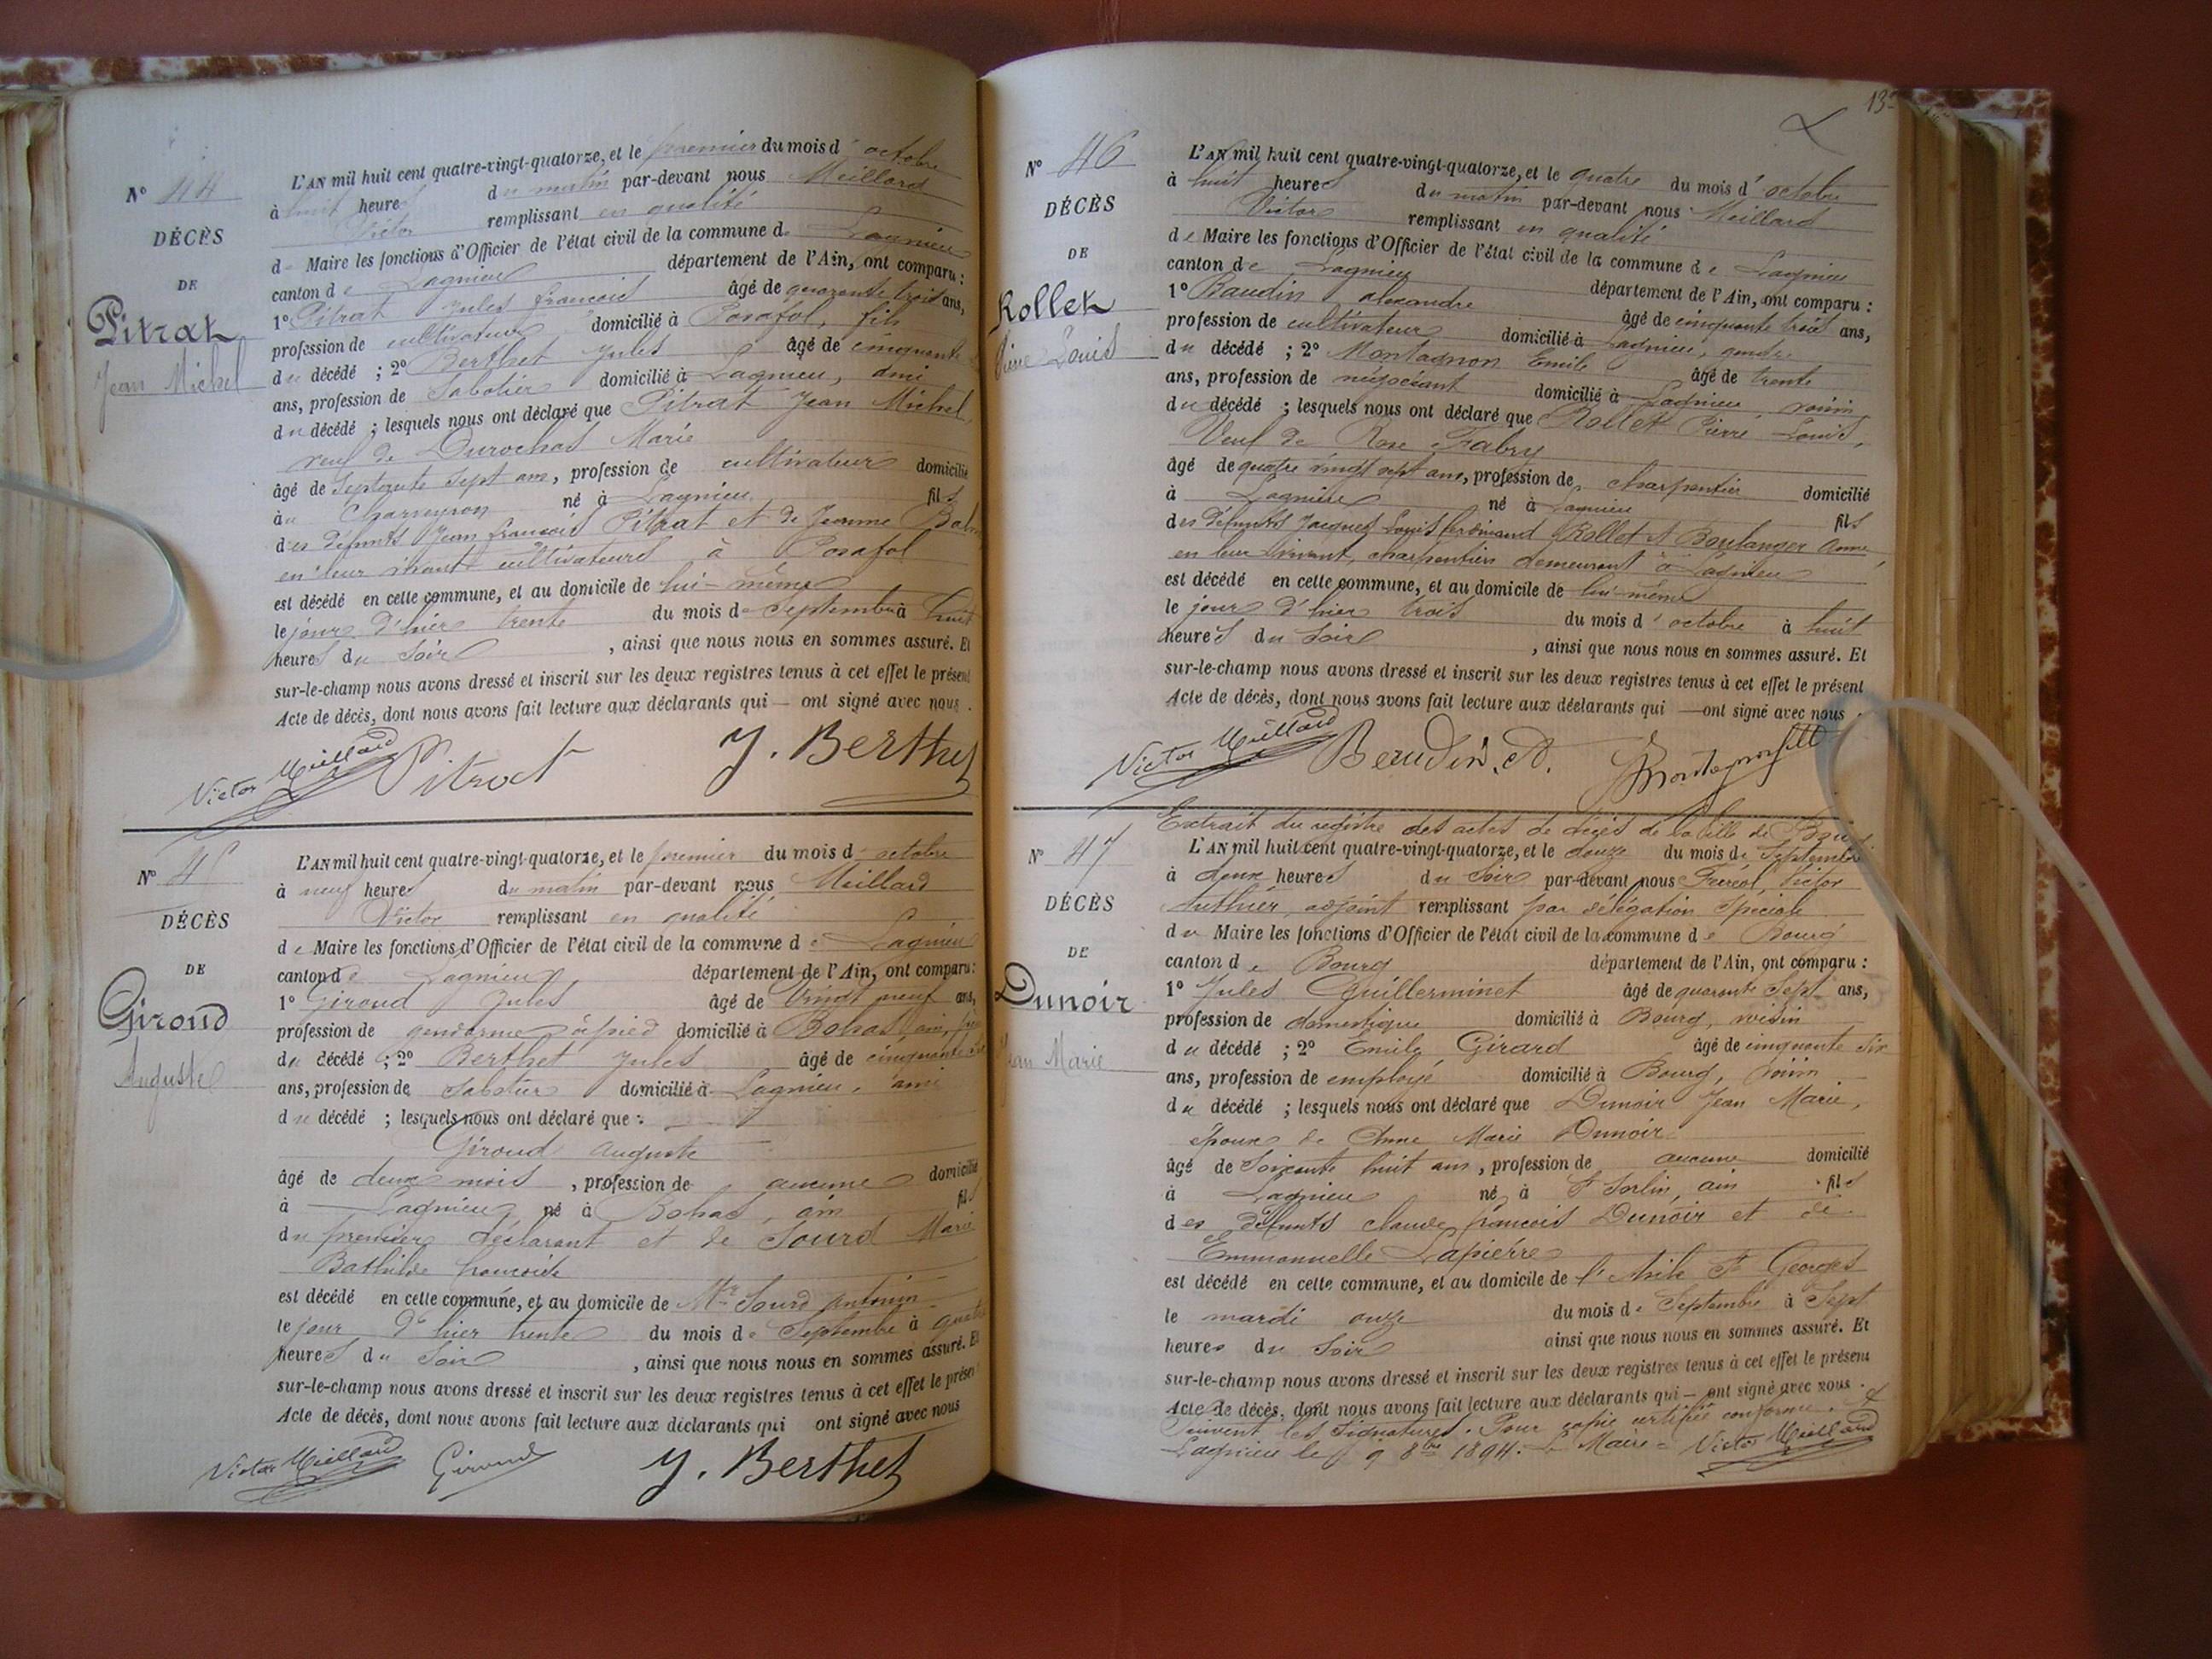 N° 44
DÉCÈS
DE
Pitrat
Jean Michel
L'AN mil huit cent quatre-vingt-quatorze, et le premier du mois d'octobre
à huit heures du matin par-devant nous Meillard
Victor remplissant en qualité
de Maire les fonctions d'Officier de l'état civil de la commune de Lagnieu
canton de Lagnieu département de l'Ain, ont comparu :
1° Pitrat Jules françois âgé de quarante trois ans,
profession de cultivateur domicilié à Posafol, fils
du décédé ; 2° Berthet Jules âgé de cinquante
ans, profession de Sabotier domicilié à Lagnieu, ami
du décédé ; lesquels nous ont déclaré que Pitrat Jean Michel,
veuf de Durochat Marie
âgé de Septante Sept ans, profession de cultivateur domicilié
au Charveyron né à Lagnieu fils
des défunts Jean françois Pitrat et de Jeanne
en leur vivant cultivateurs à Posafol
est décédé en cette commune, et au domicile de lui-même
le jour d'hier trente du mois de Septembre à huit
heures du Soir , ainsi que nous nous en sommes assuré. Et
sur-le-champ nous avons dressé et inscrit sur les deux registres tenus à cet effet le présent
Acte de décès, dont nous avons fait lecture aux déclarants qui — ont signé avec nous .
Victor Meillard Pitrat J. Berthet
N° 45
DÉCÈS
DE
Giroud
Auguste
L'AN mil huit cent quatre-vingt-quatorze, et le premier du mois d'octobre
à neuf heures du matin par-devant nous Meillard
Victor remplissant en qualité
de Maire les fonctions d'Officier de l'état civil de la commune de Lagnieu
canton de Lagnieu département de l'Ain, ont comparu :
1° Giroud Jules âgé de Vingt neuf ans,
profession de gendarme à pied domicilié à Bohas, ain,
du décédé ; 2° Berthet Jules âgé de cinquante
ans, profession de Sabotier domicilié à Lagnieu, ami
du décédé ; lesquels nous ont déclaré que :
Giroud Auguste
âgé de deux mois , profession de aucune domicilié
à Lagnieu né à Bohas, ain fils
du premier déclarant et de Sourd Marie
Bathilde françoise
est décédé en cette commune, et au domicile de Mr Sourd Antonin
le jour d'hier trente du mois de Septembre à quatre
heures du Soir , ainsi que nous nous en sommes assuré. Et
sur-le-champ nous avons dressé et inscrit sur les deux registres tenus à cet effet le présen
Acte de décès, dont nous avons fait lecture aux déclarants qui ont signé avec nous
Victor Meillard Giroud J. Berthet
N° 46
DÉCÈS
DE
Rollet
Pierre Louis
L'AN mil huit cent quatre-vingt-quatorze, et le quatre du mois d'octobre
à huit heures du matin par-devant nous Meillard
Victor remplissant en qualité
de Maire les fonctions d'Officier de l'état civil de la commune de Lagnieu
canton de Lagnieu département de l'Ain, ont comparu :
1° Baudin alexandre âgé de cinquante trois ans,
profession de cultivateur domicilié à Lagnieu, gendre
du décédé ; 2° Montagnon Emile âgé de trente
ans, profession de négociant domicilié à Lagnieu, voisin
du décédé ; lesquels nous ont déclaré que Rollet Pierre Louis,
Veuf de Rose Fabry
âgé de quatre vingt sept ans, profession de charpentier domicilié
à Lagnieu né à Lagnieu fils
des défunts Jacques Louis ferdinand Rollet et Boulanger Anne,
en leur vivant, charpentiers demeurant à Lagnieu
est décédé en cette commune, et au domicile de lui-même
le jour d'hier trois du mois d'octobre à huit
heures du Soir , ainsi que nous nous en sommes assuré. Et
sur-le-champ nous avons dressé et inscrit sur les deux registres tenus à cet effet le présent
Acte de décès, dont nous avons fait lecture aux déclarants qui — ont signé avec nous .
Victor Meillard Beaudin. A.
N° 47
DÉCÈS
DE
Dunoir
Jean Marie
Extrait du registre des actes de décès de la ville de Bourg
L'AN mil huit cent quatre-vingt-quatorze, et le douze du mois de Septembre
à deux heures du Soir par-devant nous Victor
Authier, adjoint remplissant par délégation Spéciale
du Maire les fonctions d'Officier de l'état civil de la commune de Bourg
canton de Bourg département de l'Ain, ont comparu :
1° Jules Guillerminet âgé de quarante Sept ans,
profession de domestique domicilié à Bourg, voisin
du décédé ; 2° Emile Girard âgé de cinquante Six
ans, profession de employé domicilié à Bourg, voisin
du décédé ; lesquels nous ont déclaré que Dunoir Jean Marie,
époux de Anne Marie Dunoir
âgé de Soixante huit ans, profession de aucune domicilié
à Lagnieu né à St Sorlin, ain fils
des défunts claude françois Dunoir et de
Emmanuelle Lapierre
est décédé en cette commune, et au domicile de l'Asile St Georges
le mardi onze du mois de Septembre à Sept
heures du Soir ainsi que nous nous en sommes assuré. Et
sur-le-champ nous avons dressé et inscrit sur les deux registres tenus à cet effet le présent
Acte de décès, dont nous avons fait lecture aux déclarants qui — ont signé avec nous .
Suivent les Signatures. Pour copie certifiée conforme.
Lagnieu le 9 8bre 1894. Le Maire = Victor Meillard